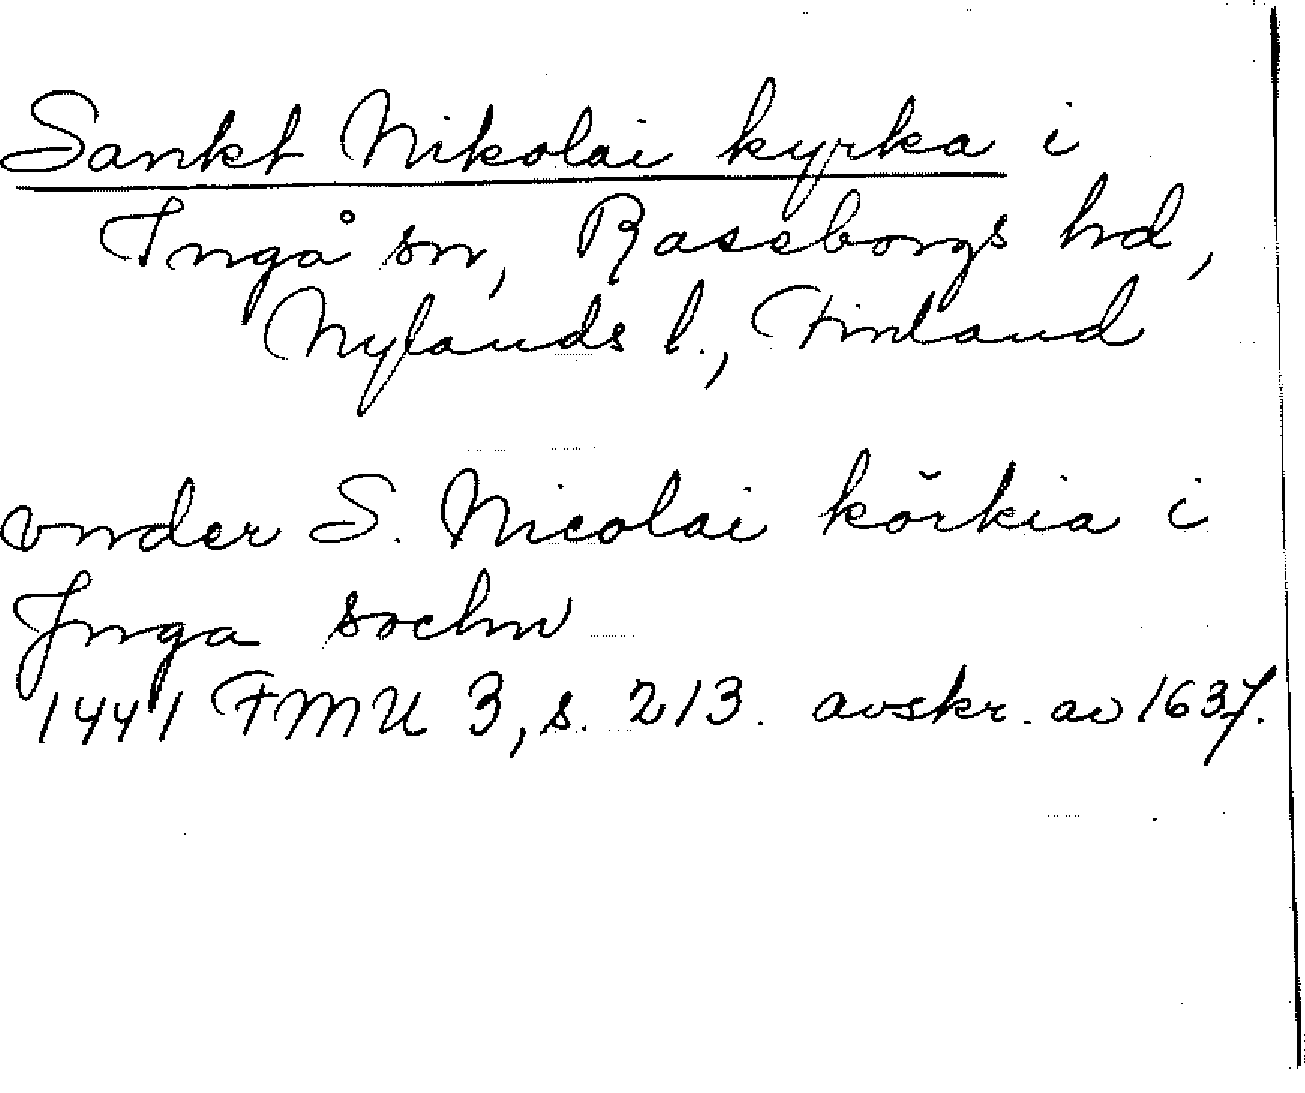 Sankt Nikolai kyrka i
Ingå sn, Raseborgs hd,
Nylands l., Finland
vnder S. Nicolai kŏrkia i
Jnga sochn
1441 FMU 3, s. 213. avskr. av 1637.